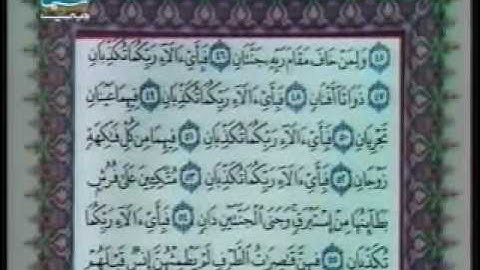 ٤٥ وَلِمَنْ خَافَ مَقَامَ رَبِّهِۦ جَنَّتَانِ ٤٦ فَبِأَيِّ ءَالَآءِ رَبِّكُمَا تُكَذِّبَانِ
٤٧ ذَوَاتَآ أَفْنَانٍ ٤٨ فَبِأَيِّ ءَالَآءِ رَبِّكُمَا تُكَذِّبَانِ ٤٩ فِيهِمَا عَيْنَانِ
تَجْرِيَانِ ٥٠ فَبِأَيِّ ءَالَآءِ رَبِّكُمَا تُكَذِّبَانِ ٥١ فِيهِمَا مِن كُلِّ فَٰكِهَةٍ
زَوْجَانِ ٥٢ فَبِأَيِّ ءَالَآءِ رَبِّكُمَا تُكَذِّبَانِ ٥٣ مُتَّكِـِٔينَ عَلَىٰ فُرُشٍۭ
بَطَآئِنُهَا مِنْ إِسْتَبْرَقٍ وَجَنَى ٱلْجَنَّتَيْنِ دَانٍ ٥٤ فَبِأَيِّ ءَالَآءِ رَبِّكُمَا
تُكَذِّبَانِ ٥٥ فِيهِنَّ قَٰصِرَٰتُ ٱلطَّرْفِ لَمْ يَطْمِثْهُنَّ إِنسٌ قَبْلَهُمْ